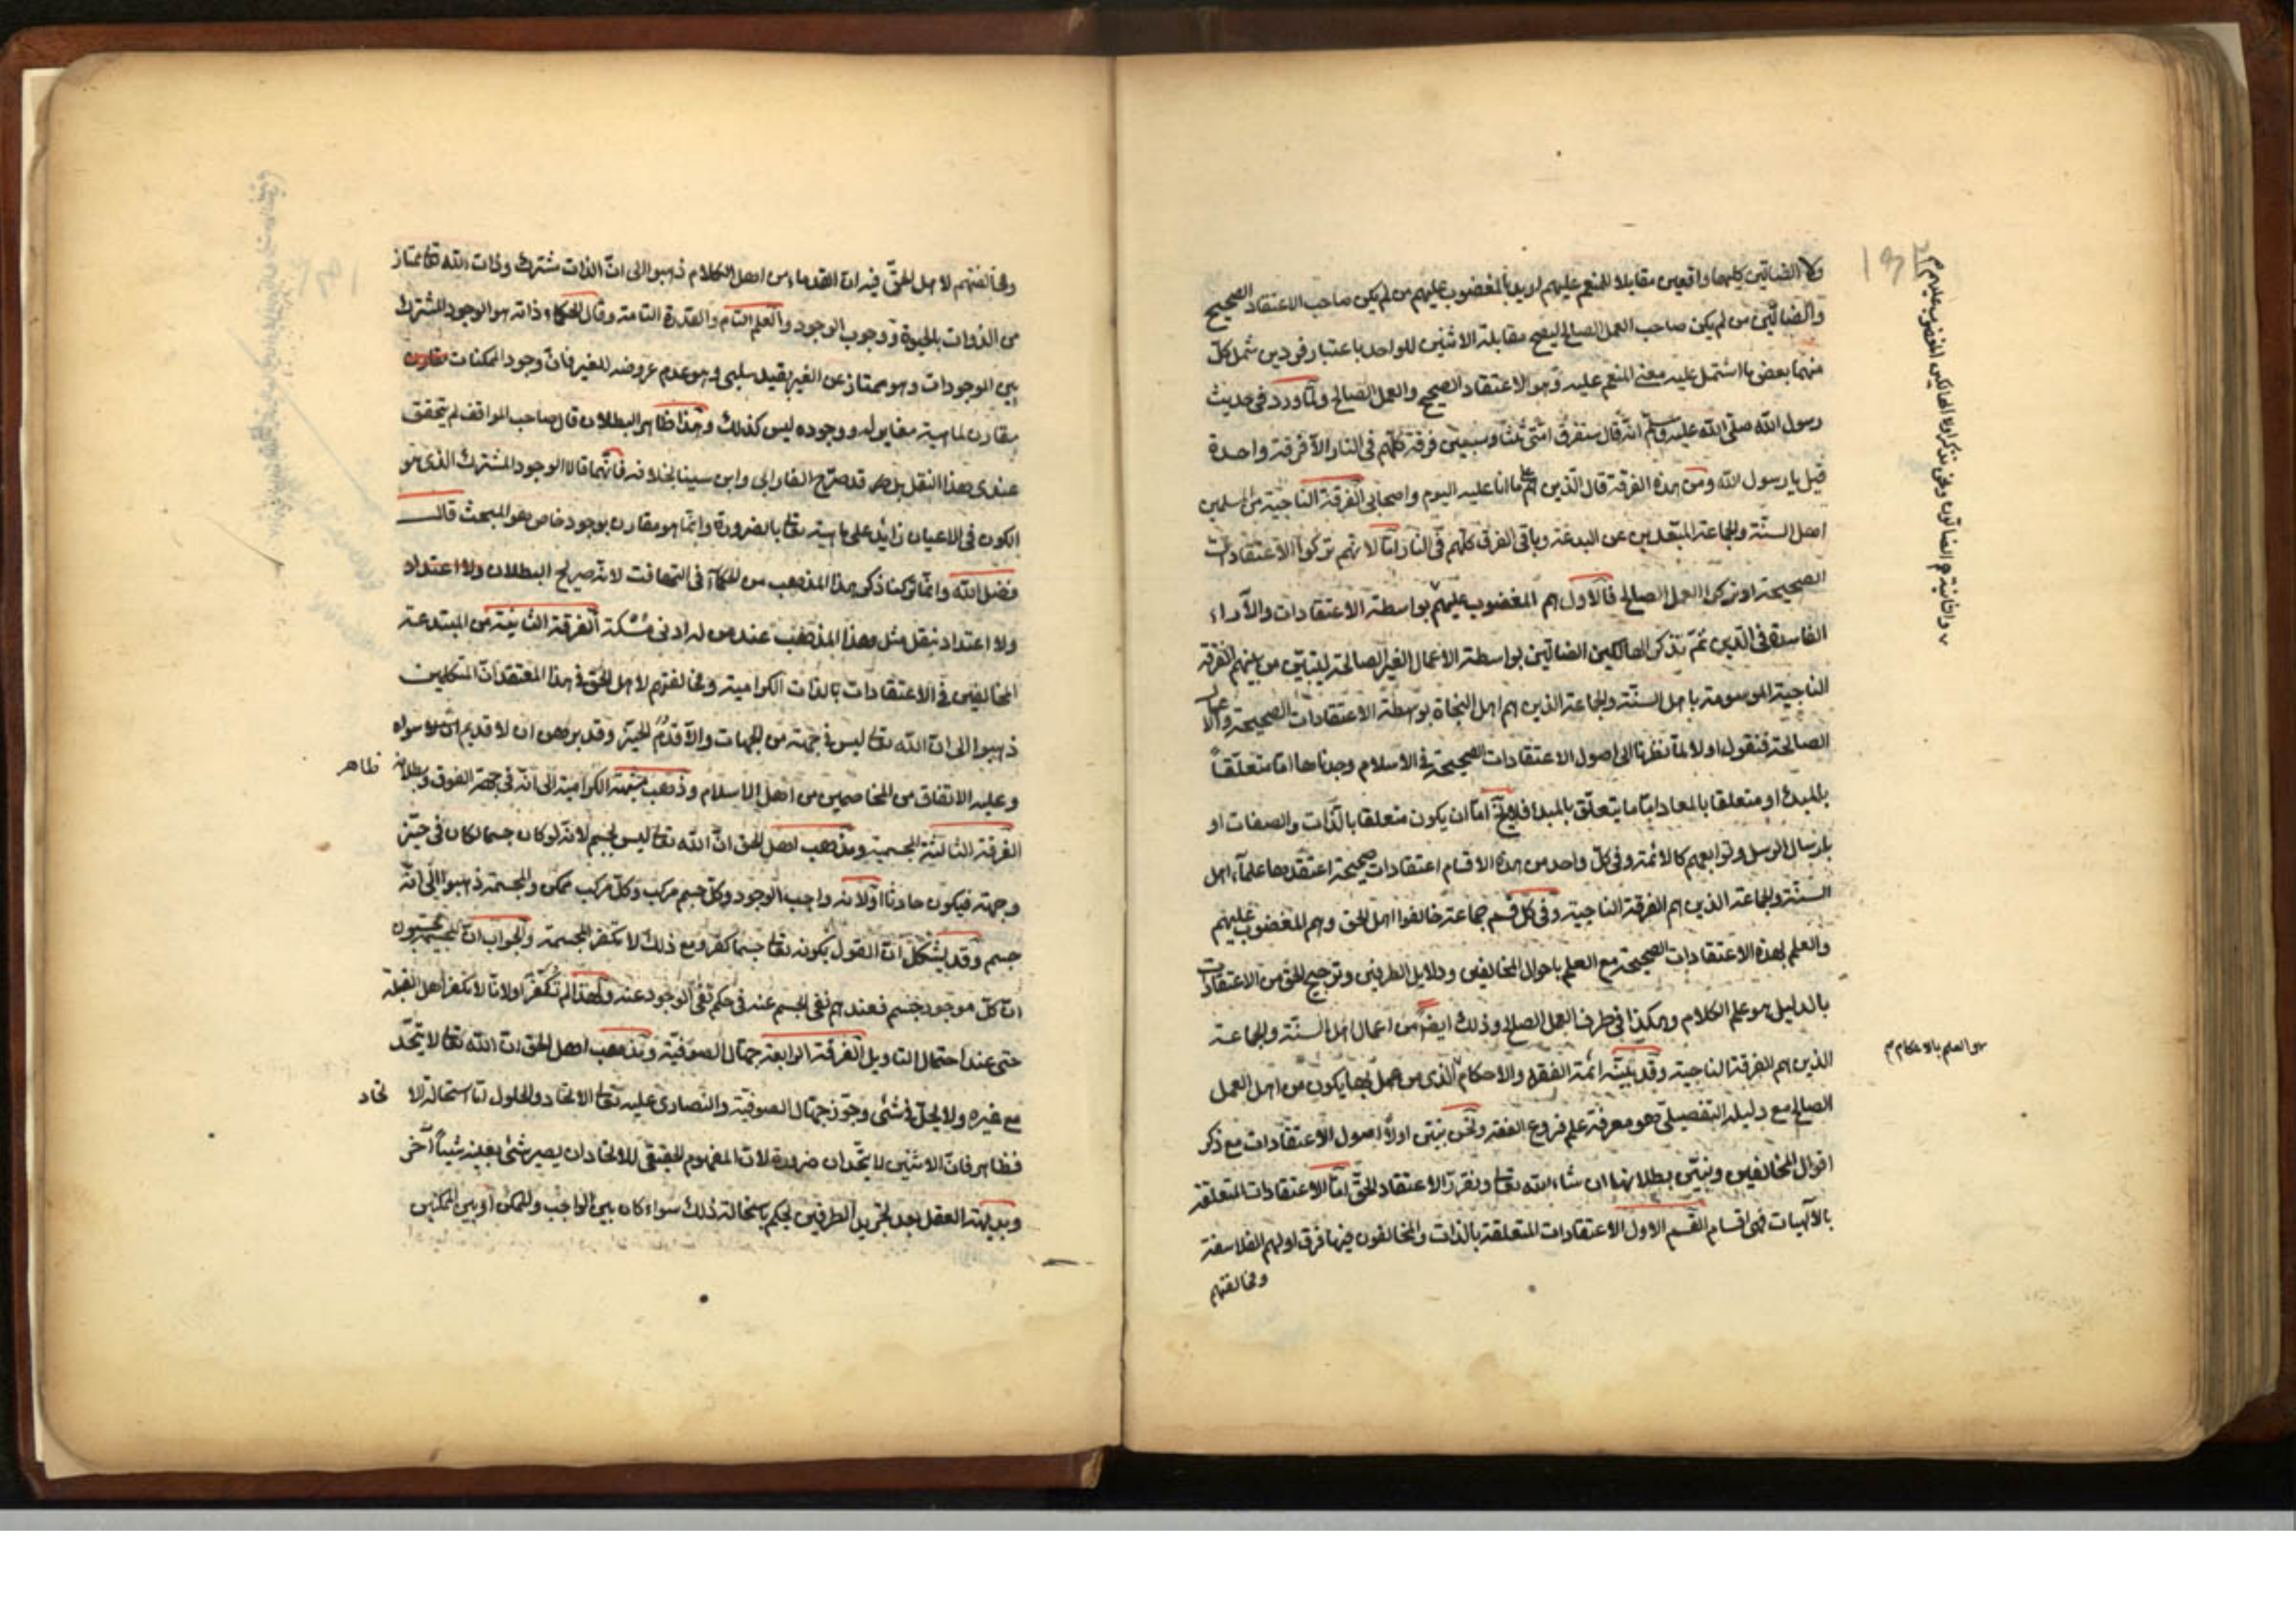 ولا الضالّين كليهما واقعين مقابلا للمنعم عليهم اريد بالمغضوب عليهم من لم يكن صاحب الاعتقاد الصحيح
والضالّين من لم يكن صاحب العمل الصالح ليصح مقابلة الاثنين للواحد باعتبار فردين شمل كلّ
منهما بعض ما اشتمل عليه معنى المنعم عليه وهو الاعتقاد الصحيح والعمل الصالح ولمّا ورد في حديث
رسول الله صلّى الله عليه وسلّم انه قال ستفرق امّتي ثلثا وسبعين فرقة كلّهم في النار الّا فرقة واحدة
قيل يا رسول الله ومن هذه الفرقة قال الذين هم ما انا عليه اليوم واصحابي الفرقة الناجية من المسلمين
اهل السنّة والجماعة المبتعدين عن البدعة وباقي الفرق كلّهم في النار امّا لانهم تركوا الاعتقادات
الصحيحة او تركوا العمل الصالح فالاول هم المغضوب عليهم بواسطة الاعتقادات والآراء
الفاسدة في الدين ثمّ نذكر الهالكين الضالّين بواسطة الاعمال الغير الصالحة ليتبيّن من بينهم الفرقة
الناجية الموسومة باهل السنّة والجماعة الذين هم اهل النجاة بوسطة الاعتقادات الصحيحة والاعمال
الصالحة فنقول اولا لمّا نظرنا الى اصول الاعتقادات الصحيحة في الاسلام وجدناها امّا متعلقاً
بالمبدء او متعلقا بالمعاد امّا ما يتعلّق بالمبدا فلا يخ امّا ان يكون متعلقا بالذات والصفات او
بارسال الرسل وتوابعهم كالائمة وفي كلّ واحد من هذه الاقسام اعتقادات صحيحة اعتقدها علمآء اهل
السنّة والجماعة الذين هم الفرقة الناجية وفي كلّ قسم جماعة خالفوا اهل الحق وهم المغضوب عليهم
والعلم بهذه الاعتقادات الصحيحة مع العلم باحوال المخالفين ودلايل الطرفين وترجيح الحق من الاعتقادات
بالدليل هو علم الكلام وهكذا في طرف العمل الصالح وذلك ايضاً من اعمال اهل السنّة والجماعة
الذين هم الفرقة الناجية وقد بيّنه ائمّة الفقه والاحكام الذي من عمل بها يكون من اهل العمل
الصالح مع دليله التفصيلي هو معرفة علم فروع الفقه ونحن نبيّن اولاً اصول الاعتقادات مع ذكر
اقوال المخالفين ونبيّن بطلانها ان شاء الله تعا ونقرّر الاعتقاد الحقّ امّا الاعتقادات المتعلقة
بالالهيات فهي اقسام القسم الاول الاعتقادات المتعلقة بالذات والمخالفون فيها فرق اولهم الفلاسفة
ومخالفتهم
والثانية هم الضالّون ونحن نذكر اولا الهالكين المغضوب عليهم
هو العلم بالاحكام
ومخالفتهم لاهل الحقّ فيه ان القدماء من اهل الكلام ذهبوا الى انّ الذات مشترك وذات الله تعا ممتاز
من الذوات بالحيوة ووجوب الوجود والعلم التام والقدرة التامة وقال الحكماء ذاته هو الوجود المشترك
بين الوجودات وهو ممتاز عن الغير بقيد سلبي وهو عدم عروضه للغير فانّ وجود الممكنات مقارن
مقارن لماهية مغاير له ووجوده ليس كذلك وهذا ظاهر البطلان قال صاحب المواقف لم يتحقق
عندي هذا النقل بل قد صرّح الفارابي وابن سينا بخلافه فانّهما قالا الوجود المشترك الذي هو
الكون في الاعيان زايد على ماهيته تعا بالضرورة وانّما هو مقارن بوجود خاص هو المبحث قال
فضل الله وانّما تركنا ذكر هذا المذهب من الحكمآء في التهافت لانّه صريح البطلان ولا اعتداد
ولا اعتداد بنقل مثل هذا المذهب عند من له ادنى مُسْكة الفرقة الثانية من المبتدعة
المخالفين في الاعتقادات بالذات الكرامية ومخالفتهم لاهل الحق في هذا المعتقد انّ المتكلمين
ذهبوا الى انّ الله تعا ليس في جهة من الجهات والّا قدُم الحيّز وقد برهن ان لا قديم سواه
وعليه الاتفاق من المخاصمين من اهل الاسلام وذهب مجسّمة الكرامية الى انّه في جهة الفوق وبطلانه ظاهر
الفرقة الثالثة المجسمية ومذهب اهل الحق انّ الله تعا ليس بجسم لانّه لو كان جسما لكان في حيّز
وجهة فيكون حادثا اوّلا نه واجب الوجود وكلّ جسم مركب وكلّ مركب ممكن والمجسمة ذهبوا الى انّه
جسم وقد يشكل انّ القول بكونه تعا جسما كفر ومع ذلك لا نكفّر المجسمة والجواب انّ المجسّمة يحسبون
انّ كلّ موجود جسم فعندهم نفي الجسم عنه في حكم نفي الوجود عنه ولهذا لم نُكفّر اولانّا لا نكفّر اهل القبلة
حتى عند احتمال التاويل الفرقة الرابعة جهّال الصوفية ومذهب اهل الحق انّ الله تعا لا يتّحد
مع غيره ولا يحلّ في شئ وجوّز جهّال الصوفية والنصارى عليه تعا الاتحاد والحلول امّا استحالة الا تحاد
فظاهر فانّ الاثنين لا يتّحدان ضرورة لانّ المفهوم الحقيقي للاتحاد ان يصير شئ بعينه شيئاً آخر
وبديهة العقل بعد تجريد الطرفين يحكم باستحالة ذلك سواء كان بين الواجب والممكن او بين الممكنين